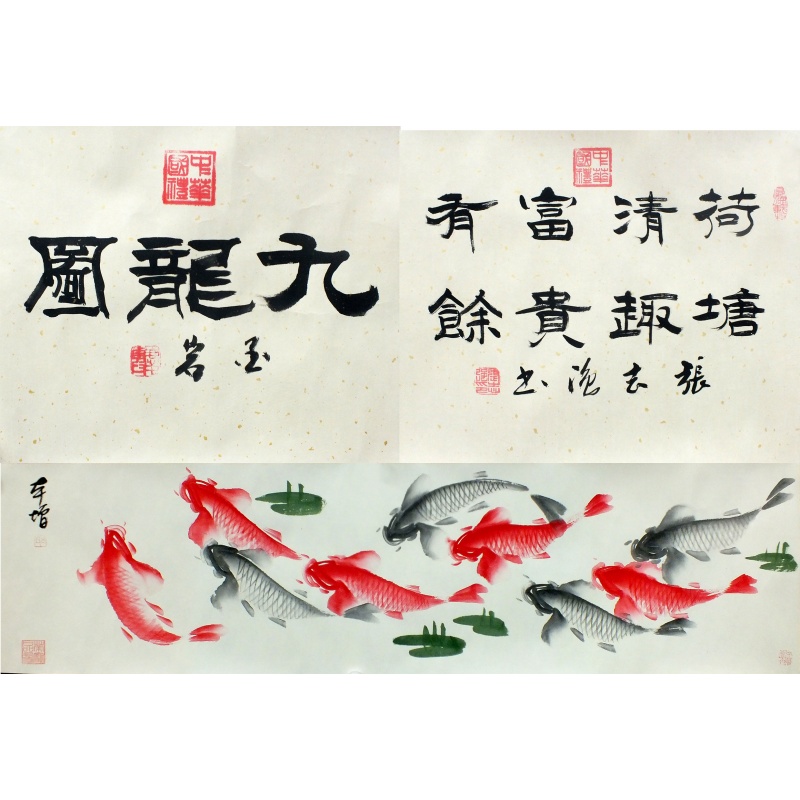 中華
國禮
九龍圖
岩
中華
國禮
荷塘
清趣
富貴
有餘
張志
書
增